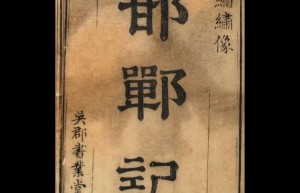 繡像
邯鄲記
吳郡書業堂